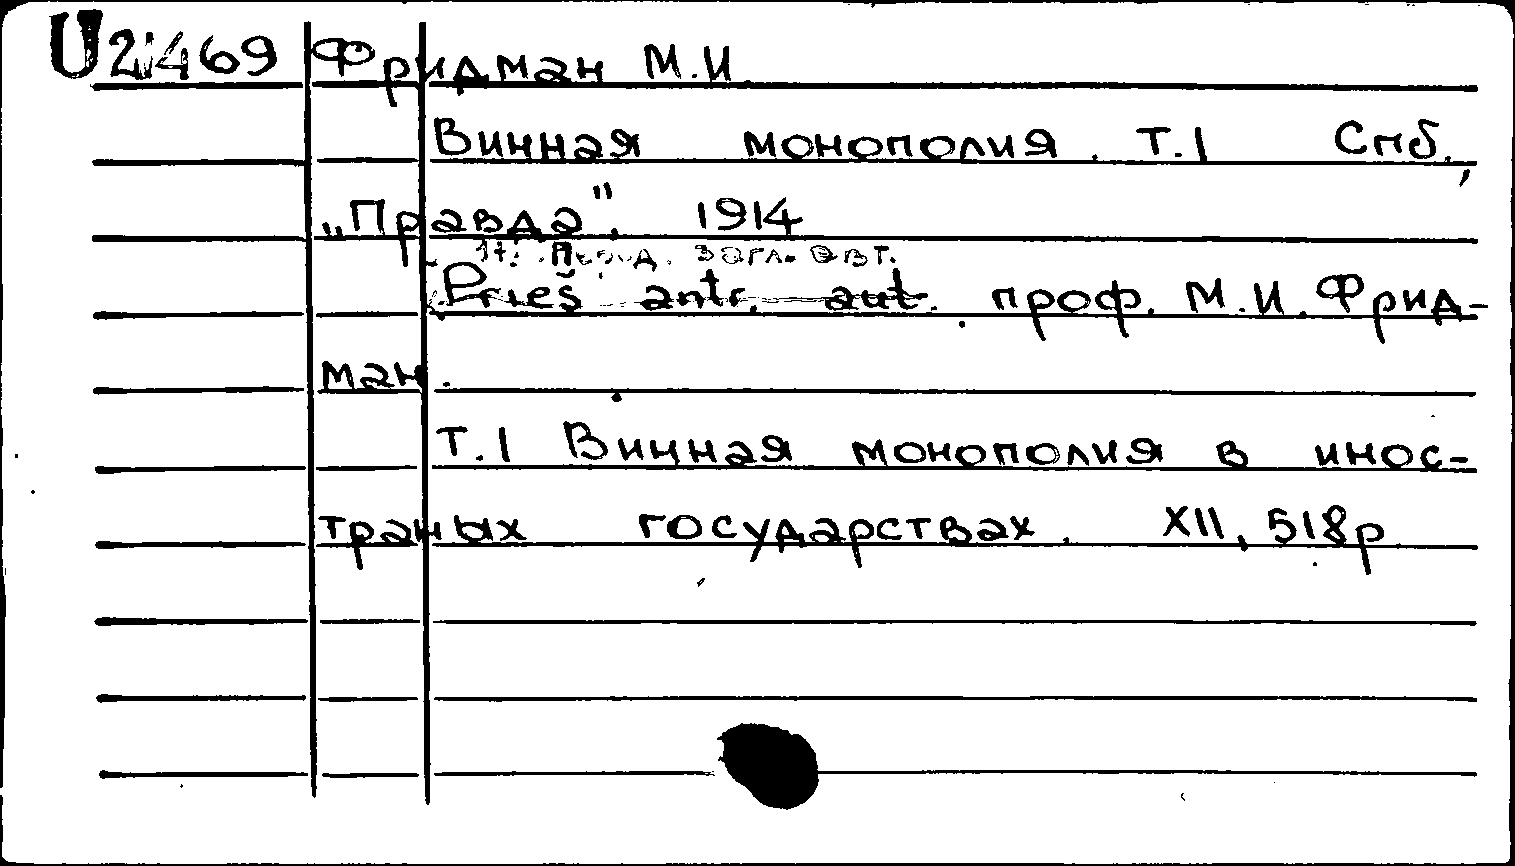 U21469 Фридман М.И.
Винная монополия. Т.1 Спб.,
„Правда". 1914
Перед. загл. авт.
Prieš antr. aut. проф. М.И. Фрид-
ман.
Т.1 Винная монополия в инос-
траных государствах. XII, 518р